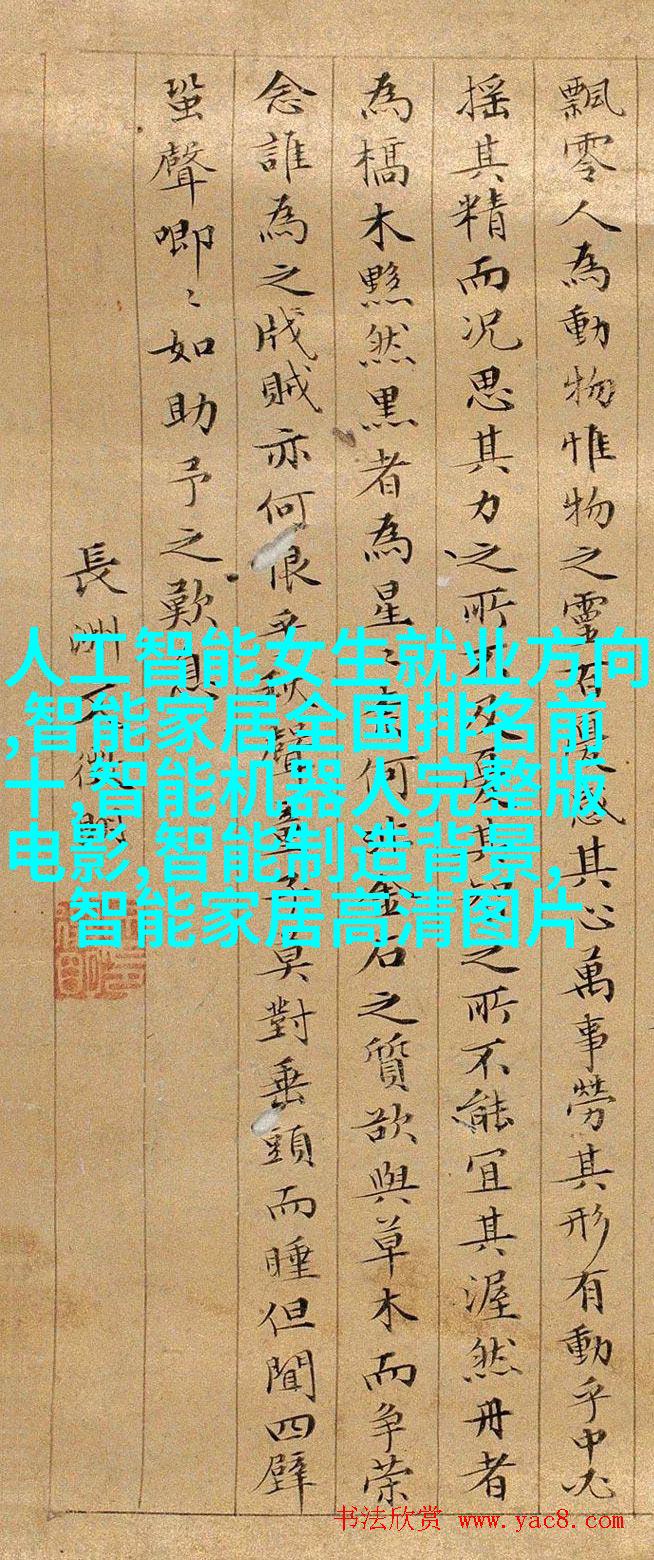 飄零人為動物惟物之靈百憂感其心萬事勞其形有動乎中必
搖其精而况思其力之所不及憂其智之所不能宜其渥然丹者
為槁木黟然黒者為星〻奈何非金石之質欲與草木而争榮
念誰為之戕賊亦何恨乎秋聲童子莫對垂頭而睡但聞四壁
蛩聲唧〻如助予之歎息
長洲文徵明
人工智能女生就业方向
,智能家居全国排名前
十,智能机器人完整版
电影,智能制造背景,
智能家居高清图片
书法欣赏 www.yac8.com